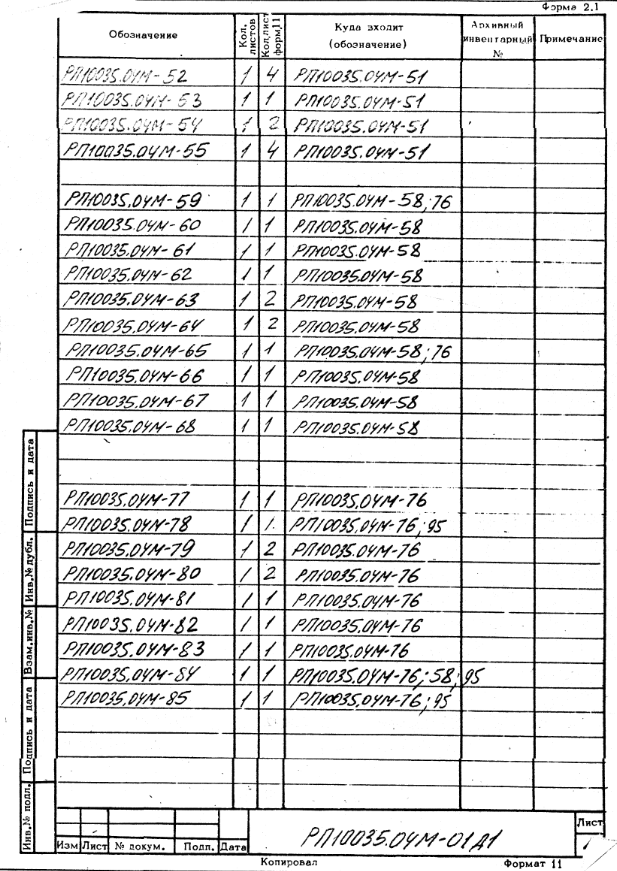 Форма 2.1
Обозначение Кол. листов Кол. лист форм. 11 Куда входит (обозначение) Архивный инвентарный № Примечание
РП10035.04М-52 1 4 РП10035.04М-51
РП10035.04М-53 1 1 РП10035.04М-51
РП10035.04М-54 1 2 РП10035.04М-51
РП10035.04М-55 1 4 РП10035.04М-51
РП10035.04М-59 1 1 РП10035.04М-58;76
РП10035.04М-60 1 1 РП10035.04М-58
РП10035.04М-61 1 1 РП10035.04М-58
РП10035.04М-62 1 1 РП10035.04М-58
РП10035.04М-63 1 2 РП10035.04М-58
РП10035.04М-64 1 2 РП10035.04М-58
РП10035.04М-65 1 1 РП10035.04М-58;76
РП10035.04М-66 1 1 РП10035.04М-58
РП10035.04М-67 1 1 РП10035.04М-58
РП10035.04М-68 1 1 РП10035.04М-58
РП10035.04М-77 1 1 РП10035.04М-76
РП10035.04М-78 1 1 РП10035.04М-76;95
РП10035.04М-79 1 2 РП10035.04М-76
РП10035.04М-80 1 2 РП10035.04М-76
РП10035.04М-81 1 1 РП10035.04М-76
РП10035.04М-82 1 1 РП10035.04М-76
РП10035.04М-83 1 1 РП10035.04М-76
РП10035.04М-84 1 1 РП10035.04М-76;58;95
РП10035.04М-85 1 1 РП10035.04М-76;95
Инв.№ подл. Подпись и дата Взам.инв.№ Инв.№ дубл. Подпись и дата
РП10035.04М-01Д1
Лист
Изм Лист № докум. Подп. Дата
Копировал Формат 11